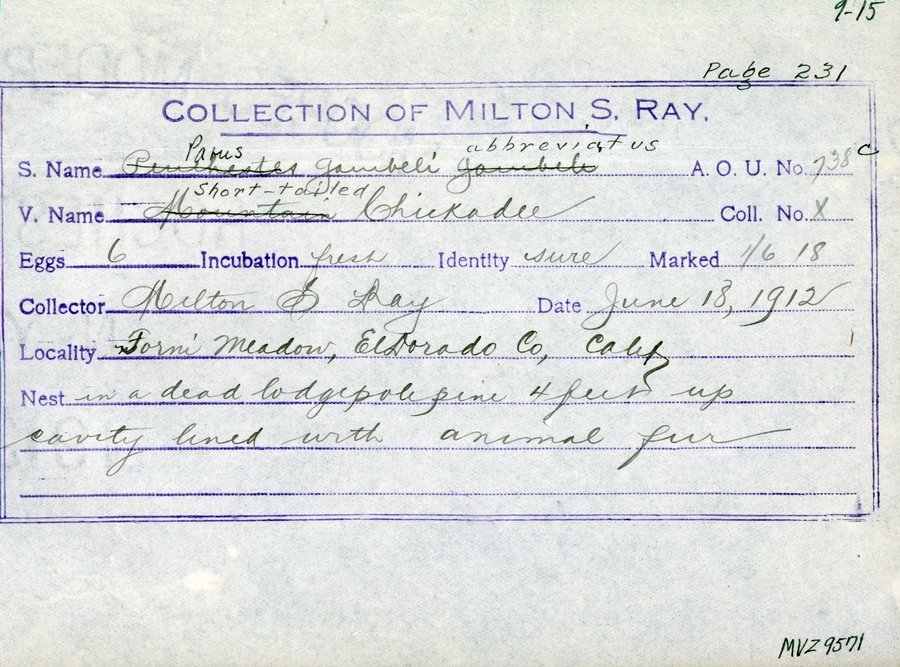 9-15
Page 231
COLLECTION OF MILTON S. RAY.
Parus abbreviatus
S. Name Penthestes gambeli gambeli A. O. U. No. 738 c
Short-tailed
V. Name Mountain Chickadee Coll. No. X
Eggs 6 Incubation fresh Identity sure Marked 1/6 18
Collector Milton S Ray Date June 18, 1912
Locality Forni Meadow, El Dorado Co, Calif
Nest in a dead lodgepole pine 4 feet up
cavity lined with animal fur
MVZ 9571